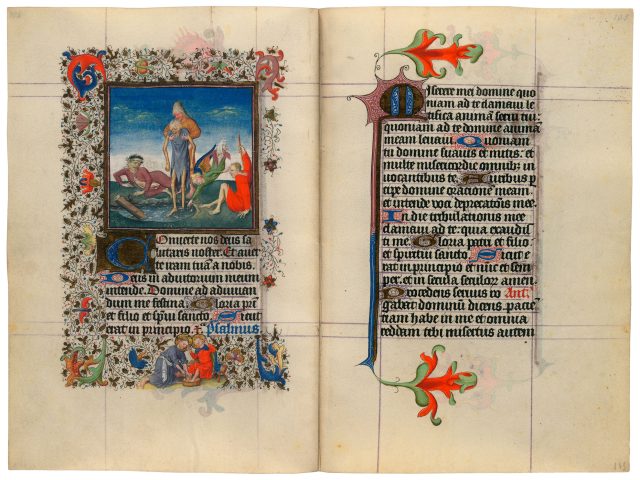 Onverte nos deus sa
lutaris noster. Et aver
te iram tuā a nobis.
Deus in adiutorium meum
intende. Domine ad adiuvan
dum me festina. Gloria pr̄i
et filio et spūi sancto Sicut
erat in principio Psalmus
Miserere mei domine quo
niam ad te clamavi le
tifica animā servi tui
quoniam ad te domine animā
meam levavi. Quoniam
tu domine suavis et mitis: et
multe misericordie omnibꝫ in
vocantibus te. Auribus p
cipe domine oracionē meam
et intende voci deprecatiōis mee.
In die tribulationis mee
clamavi ad te: quia exaudis
ti me. Gloria patri et filio
et spiritui sancto Sicut e
rat in principio et nūc et sem
per. et in secula seculoꝝ amen
Procedens servus co Ant.
gabat dominū dicens. pacien
tiam habe in me et omnia
reddam tibi misertus autem